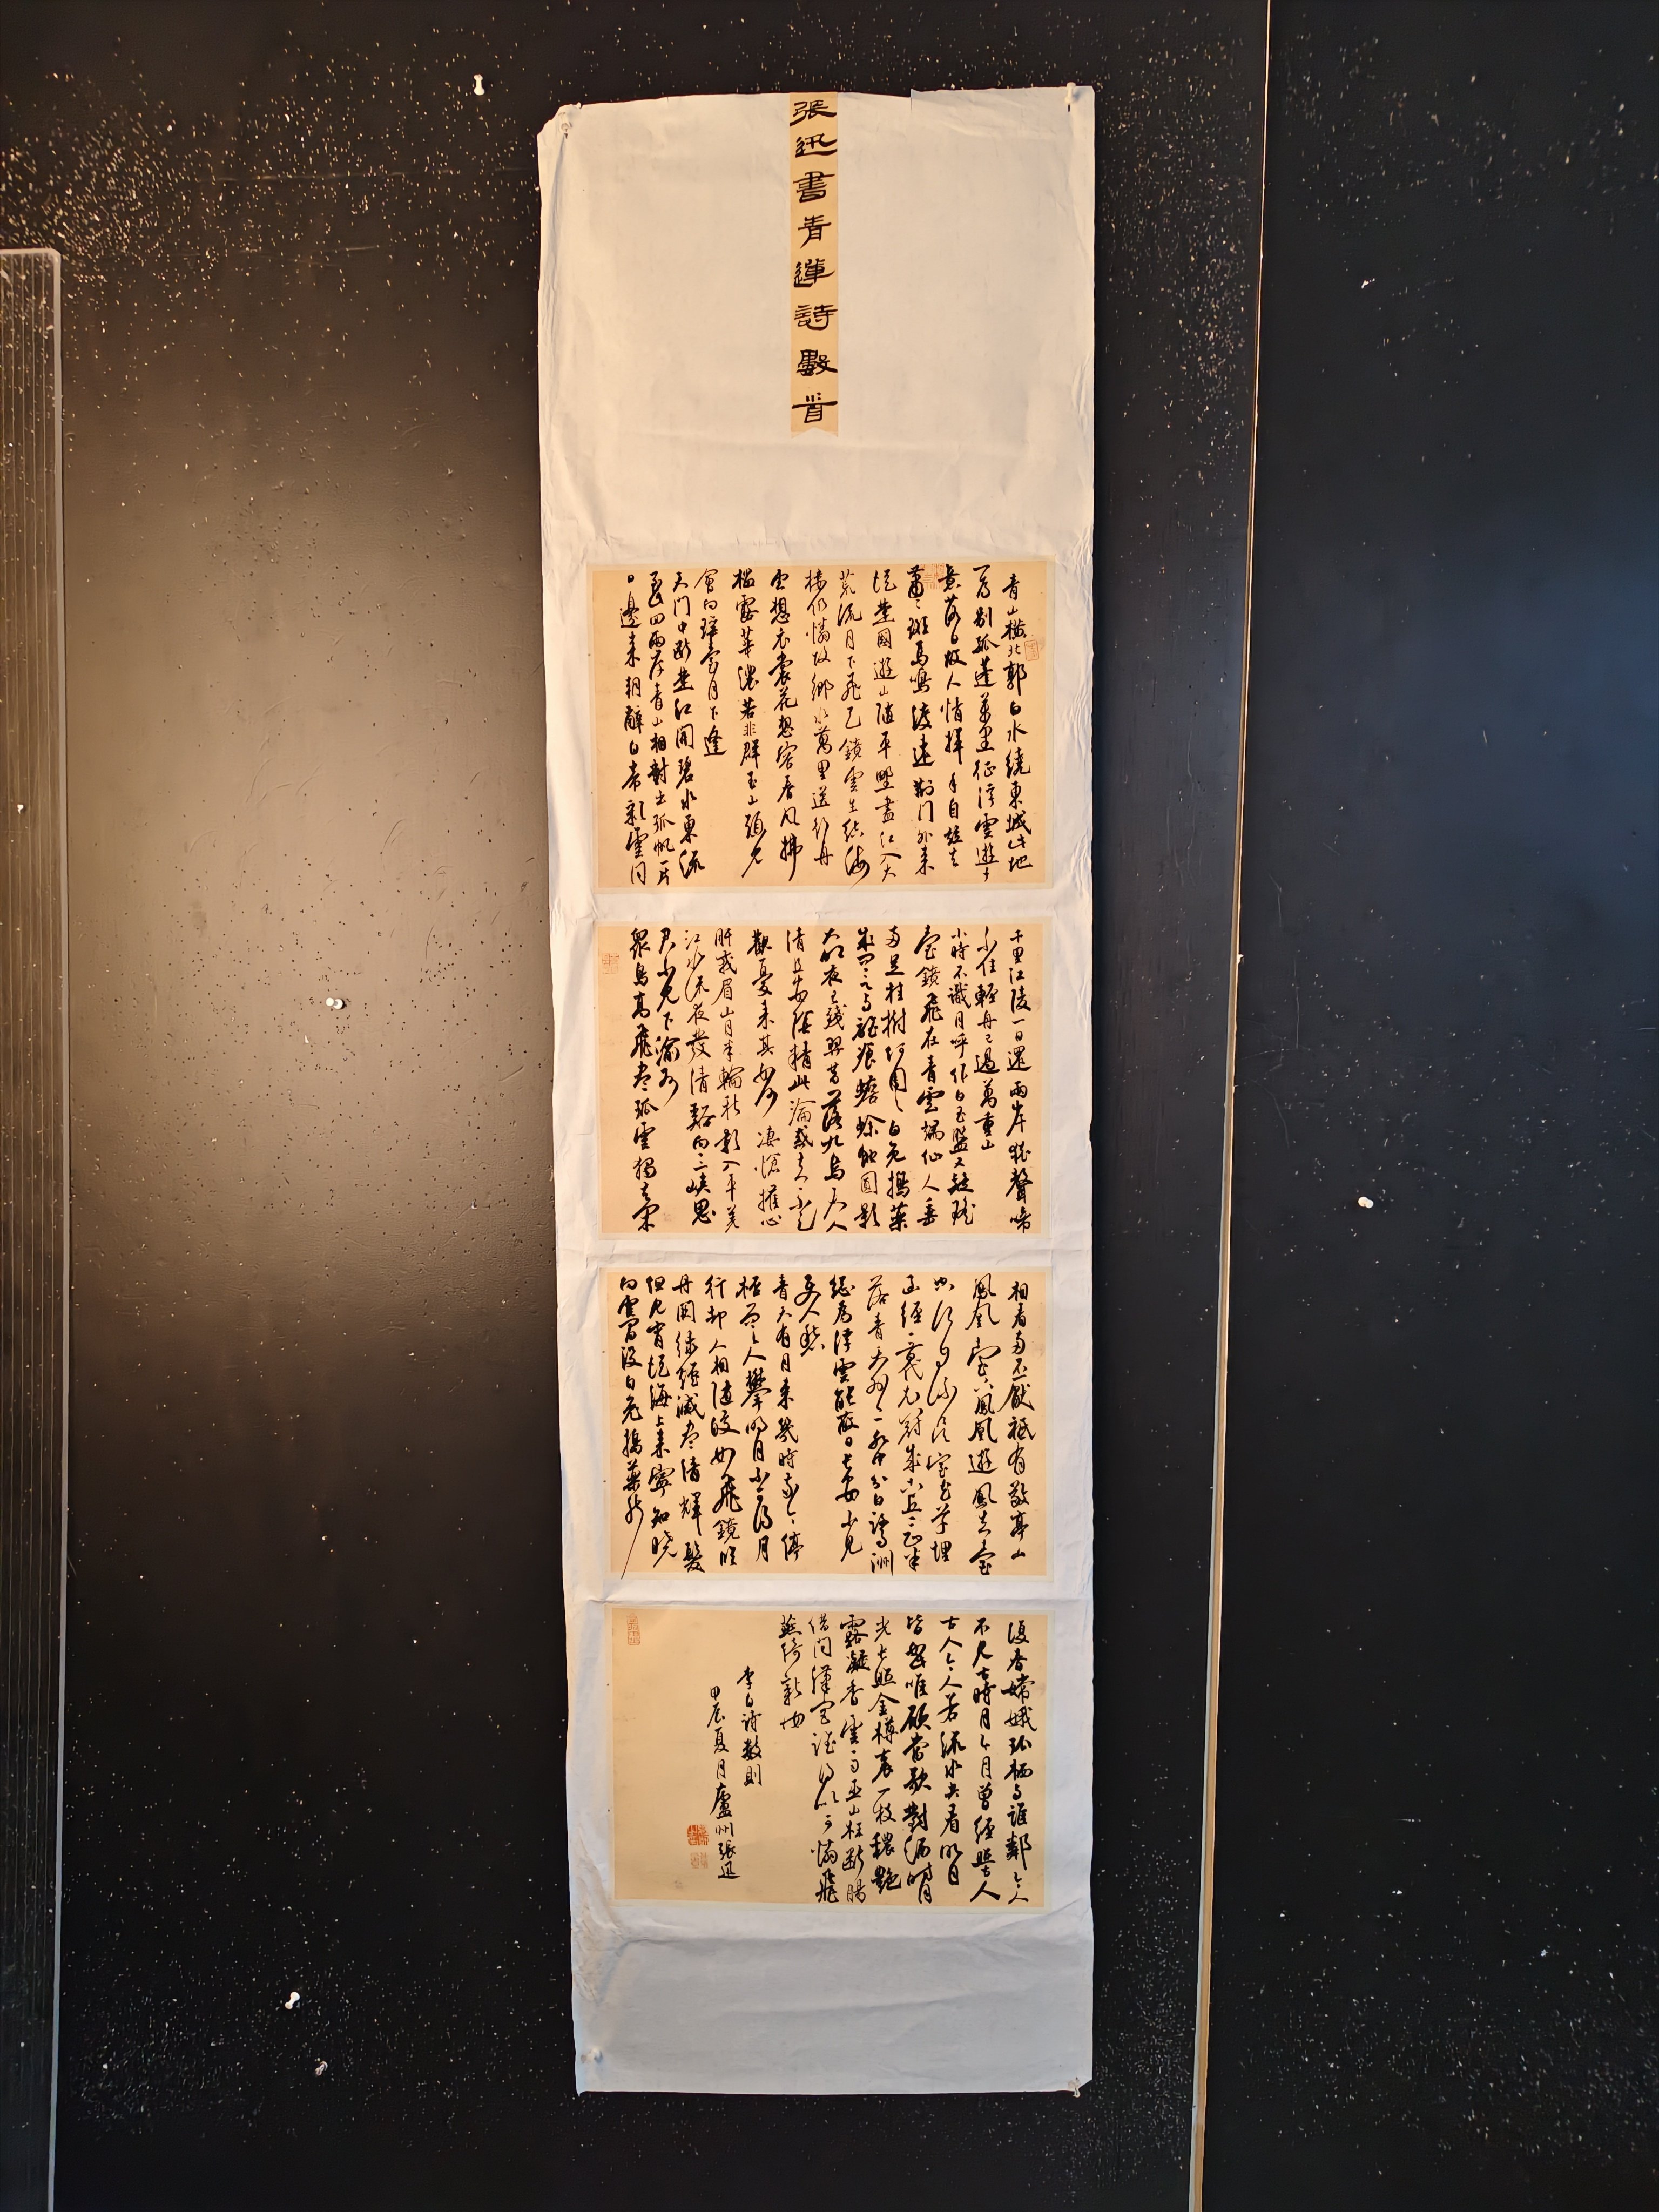 張迅書青蓮詩數首
青山橫北郭白水繞東城此地
一為別孤蓬萬里征浮雲遊子
意落日故人情揮手自茲去
蕭〻斑馬鳴渡遠荊門外來
從楚國遊山隨平野盡江入大
荒流月下飛天鏡雲生結海
樓仍憐故鄉水萬里送行舟
雲想衣裳花想容春風拂
檻露華濃若非群玉山頭見
會向瑤臺月下逢
天門中斷楚江開碧水東流
至此回兩岸青山相對出孤帆一片
日邊來朝辭白帝彩雲間
千里江陵一日還兩岸猿聲啼
不住輕舟已過萬重山
小時不識月呼作白玉盤又疑瑤
臺鏡飛在青雲端仙人垂
兩足桂樹何團〻白兔搗藥
成問言與誰餐蟾蜍蝕圓影
大明夜已殘羿昔落九烏天人
清且安陰精此淪惑去〻不足
觀憂來其如何悽愴摧心
肝峨眉山月半輪秋影入平羌
江水流夜發清谿向三峽思
君不見下渝州
眾鳥高飛盡孤雲獨去閑
相看兩不厭祗有敬亭山
鳳凰臺上鳳凰遊鳳去臺
空江自流吳宮花草埋
幽徑晉代衣冠成古丘三山半
落青天外一水中分白鷺洲
總為浮雲能蔽日長安不見
使人愁
青天有月來幾時我今停
杯一問之人攀明月不可得月
行卻人相隨皎如飛鏡臨
丹闕綠煙滅盡清輝發
但見宵從海上來寧知曉
向雲間沒白兔搗藥秋
復春嫦娥孤栖與誰鄰今人
不見古時月今月曾經照古人
古人今人若流水共看明月
皆如此唯願當歌對酒時月
光長照金樽裏一枝穠艷
露凝香雲雨巫山枉斷腸
借問漢宮誰得似可憐飛
燕倚新妝
李白詩數則
甲辰夏月廬州張迅